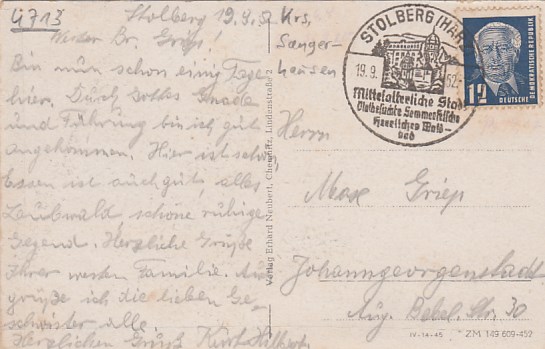 4713
Stolberg 19.9.52 Krs.
Sanger-
hausen
Werter Br. Griep!
Bin nun schon einige Tage
hier. Durch Gottes Gnade
und Führung bin ich gut
angekommen. Hier ist schön,
Essen ist auch gut, alles
Laubwald, schöne ruhige
Gegend. Herzliche Grüße
Ihrer werten Familie. Auch
grüße ich die lieben Ge-
schwister alle.
Herzlichen Gruß Kurt
Verlag Erhard Neubert, Chemnitz, Lindenstraße 2
STOLBERG (HARZ)
19.9. 52
Mittelalterliche Stadt
Vielbesuchte Sommerfrische
Herrliches Wald-
bad
DEUTSCHE DEMOKRATISCHE REPUBLIK
12
Herrn
Max Griep
Johanngeorgenstadt
Aug. Bebel Str. 30
IV-14-45 ZM 149 609-452